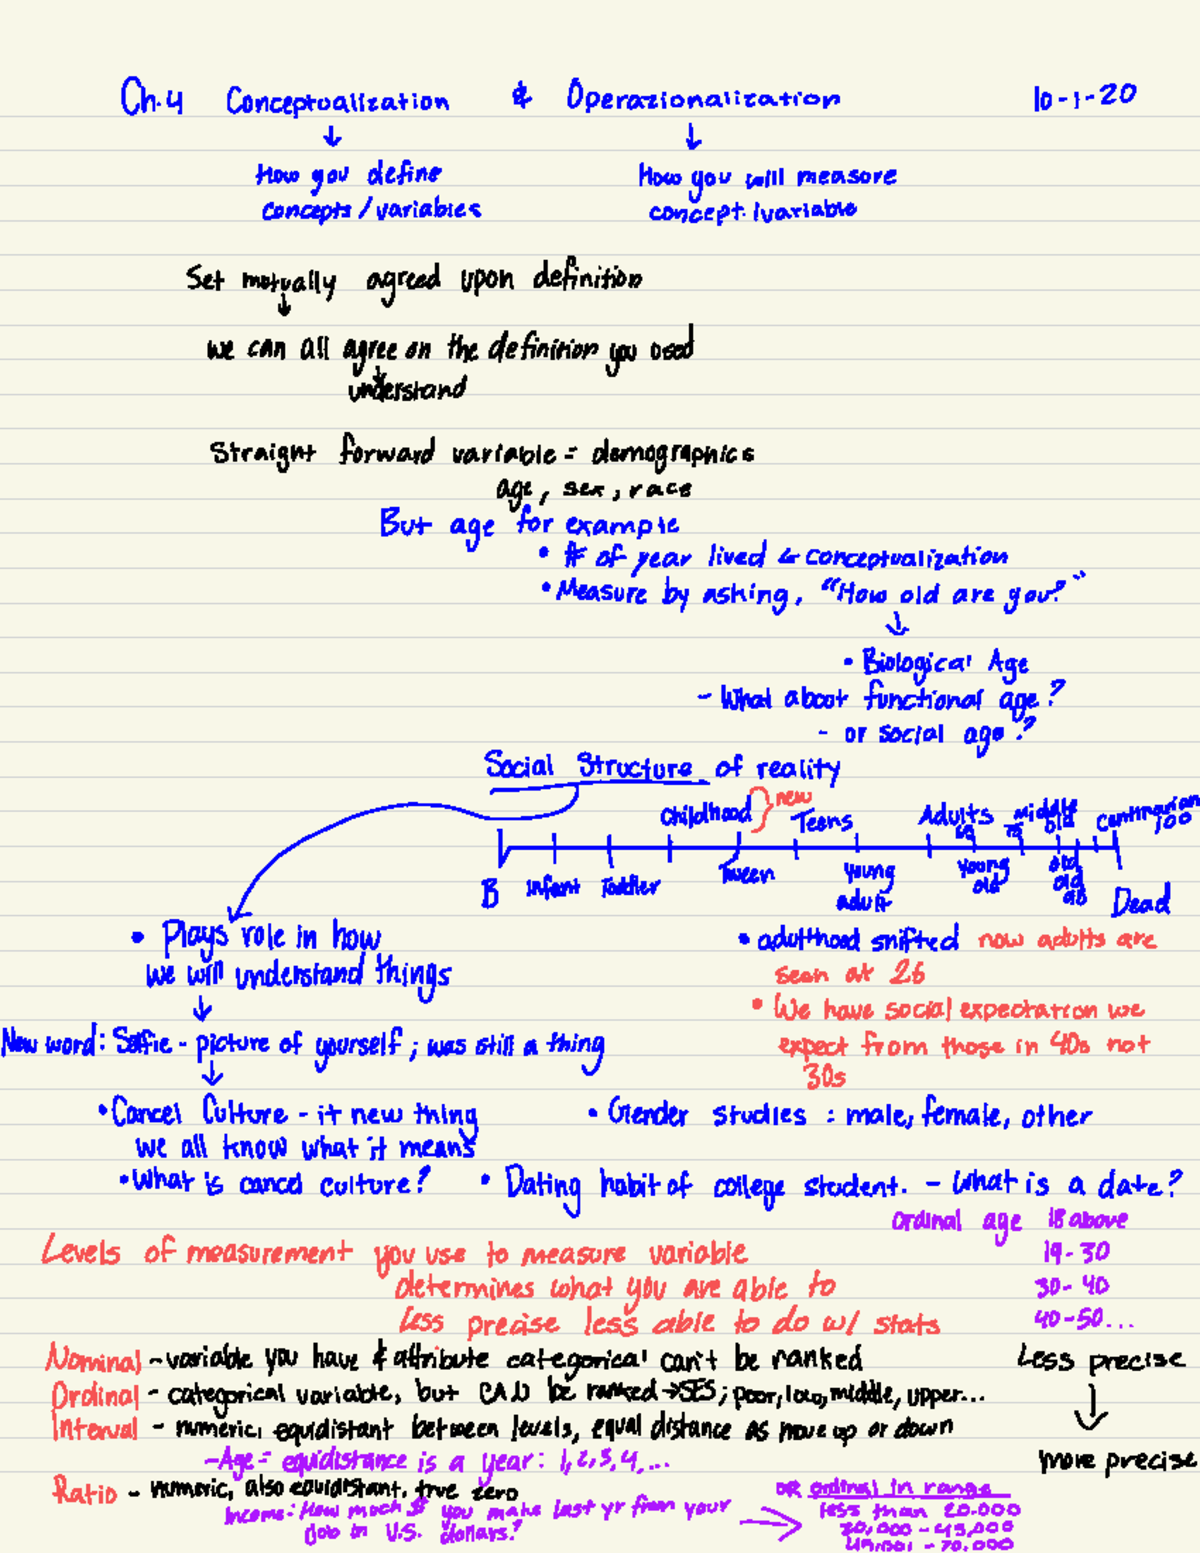 Ch.4 Conceptualization & Operazionalization 10-1-20
How you define
concepts/variables
How you will measure
concept/variable
Set mutually agreed upon definition
we can all agree on the definition you used
understand
Straight forward variable = demographics
age, sex, race
But age for example
• # of year lived ← conceptualization
• Measure by asking, "How old are you?"
• Biological Age
- What about functional age?
- or social age?
Social Structure of reality
Childhood } new Teens Adults Middle old
60 75 100
B Infant Toddler Tween young adult young old old old 85 Dead
• Plays role in how
we will understand things
• adulthood shifted now adults are
seen at 26
• We have social expectation we
expect from those in 40s not
30s
New word: Selfie - picture of yourself; was still a thing
• Cancel Culture - it new thing
we all know what it means
• What is cancel culture?
• Gender studies : male, female, other
• Dating habit of college student. - What is a date?
ordinal age 18 above
19-30
30-40
40-50...
Levels of measurement you use to measure variable
determines what you are able to
less precise less able to do w/ stats
Nominal - variable you have & attribute categorical can't be ranked
Ordinal - categorical variable, but CAN be ranked → SES; poor, low, middle, upper...
Interval - numeric, equidistant between levels, equal distance as move up or down
- Age = equidistance is a year: 1,2,3,4,...
Less precise
↓
more precise
Ratio - numeric, also equidistant, true zero
Income: How much $ you make last yr from your
job in U.S. dollars?
→
OR ordinal in range
less than 20.000
20,000 - 45,000
45,001 - 70,000